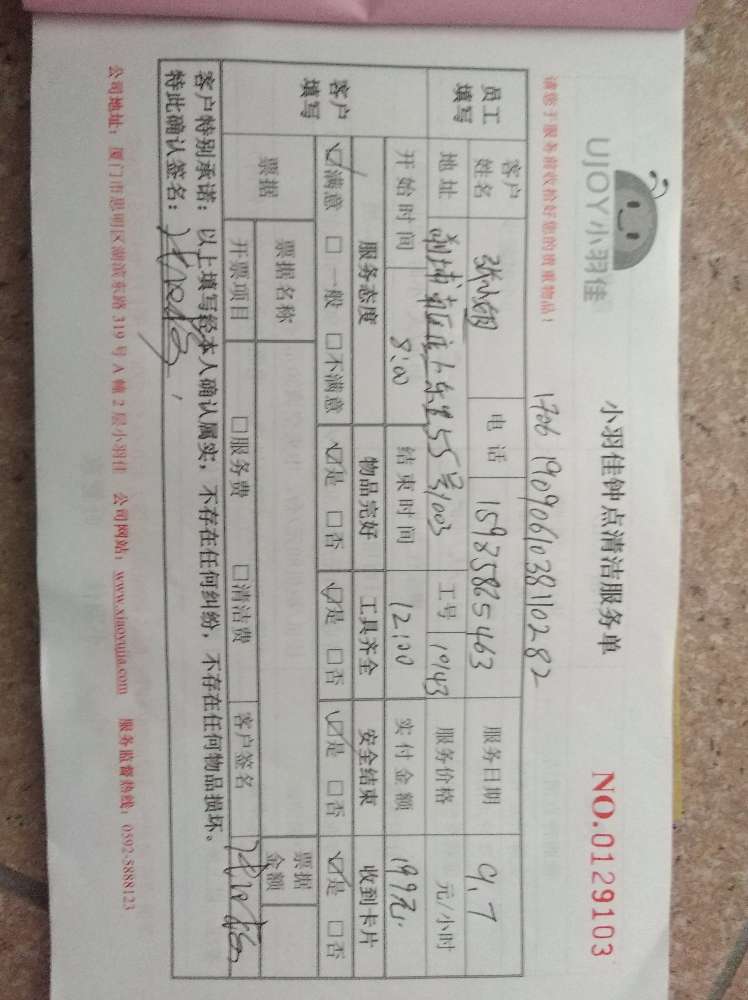 UJOY小羽佳
小羽佳钟点清洁服务单
NO.0129103
请您于服务前收拾好您的贵重物品!
1706 1909061038110282
员工填写
客户姓名 张小娟 电话 15985865463 服务日期 9.7
地址 南区 上东里55号1003 工号 1943 服务价格 元/小时
开始时间 8:00 结束时间 12:00 实付金额 199元
客户填写
服务态度 物品完好 工具齐全 安全结束 收到卡片
☑满意 □一般 □不满意 ☑是 □否 ☑是 □否 ☑是 □否 ☑是 □否
票据 票据名称 票据金额
开票项目 □服务费 □清洁费 客户签名
客户特别承诺:以上填写经本人确认属实,不存在任何纠纷,不存在任何物品损坏。
特此确认签名:
公司地址:厦门市思明区湖滨东路319号A幢2层小羽佳 公司网站:www.xiaoyujia.com 服务监督热线:0592-5888123